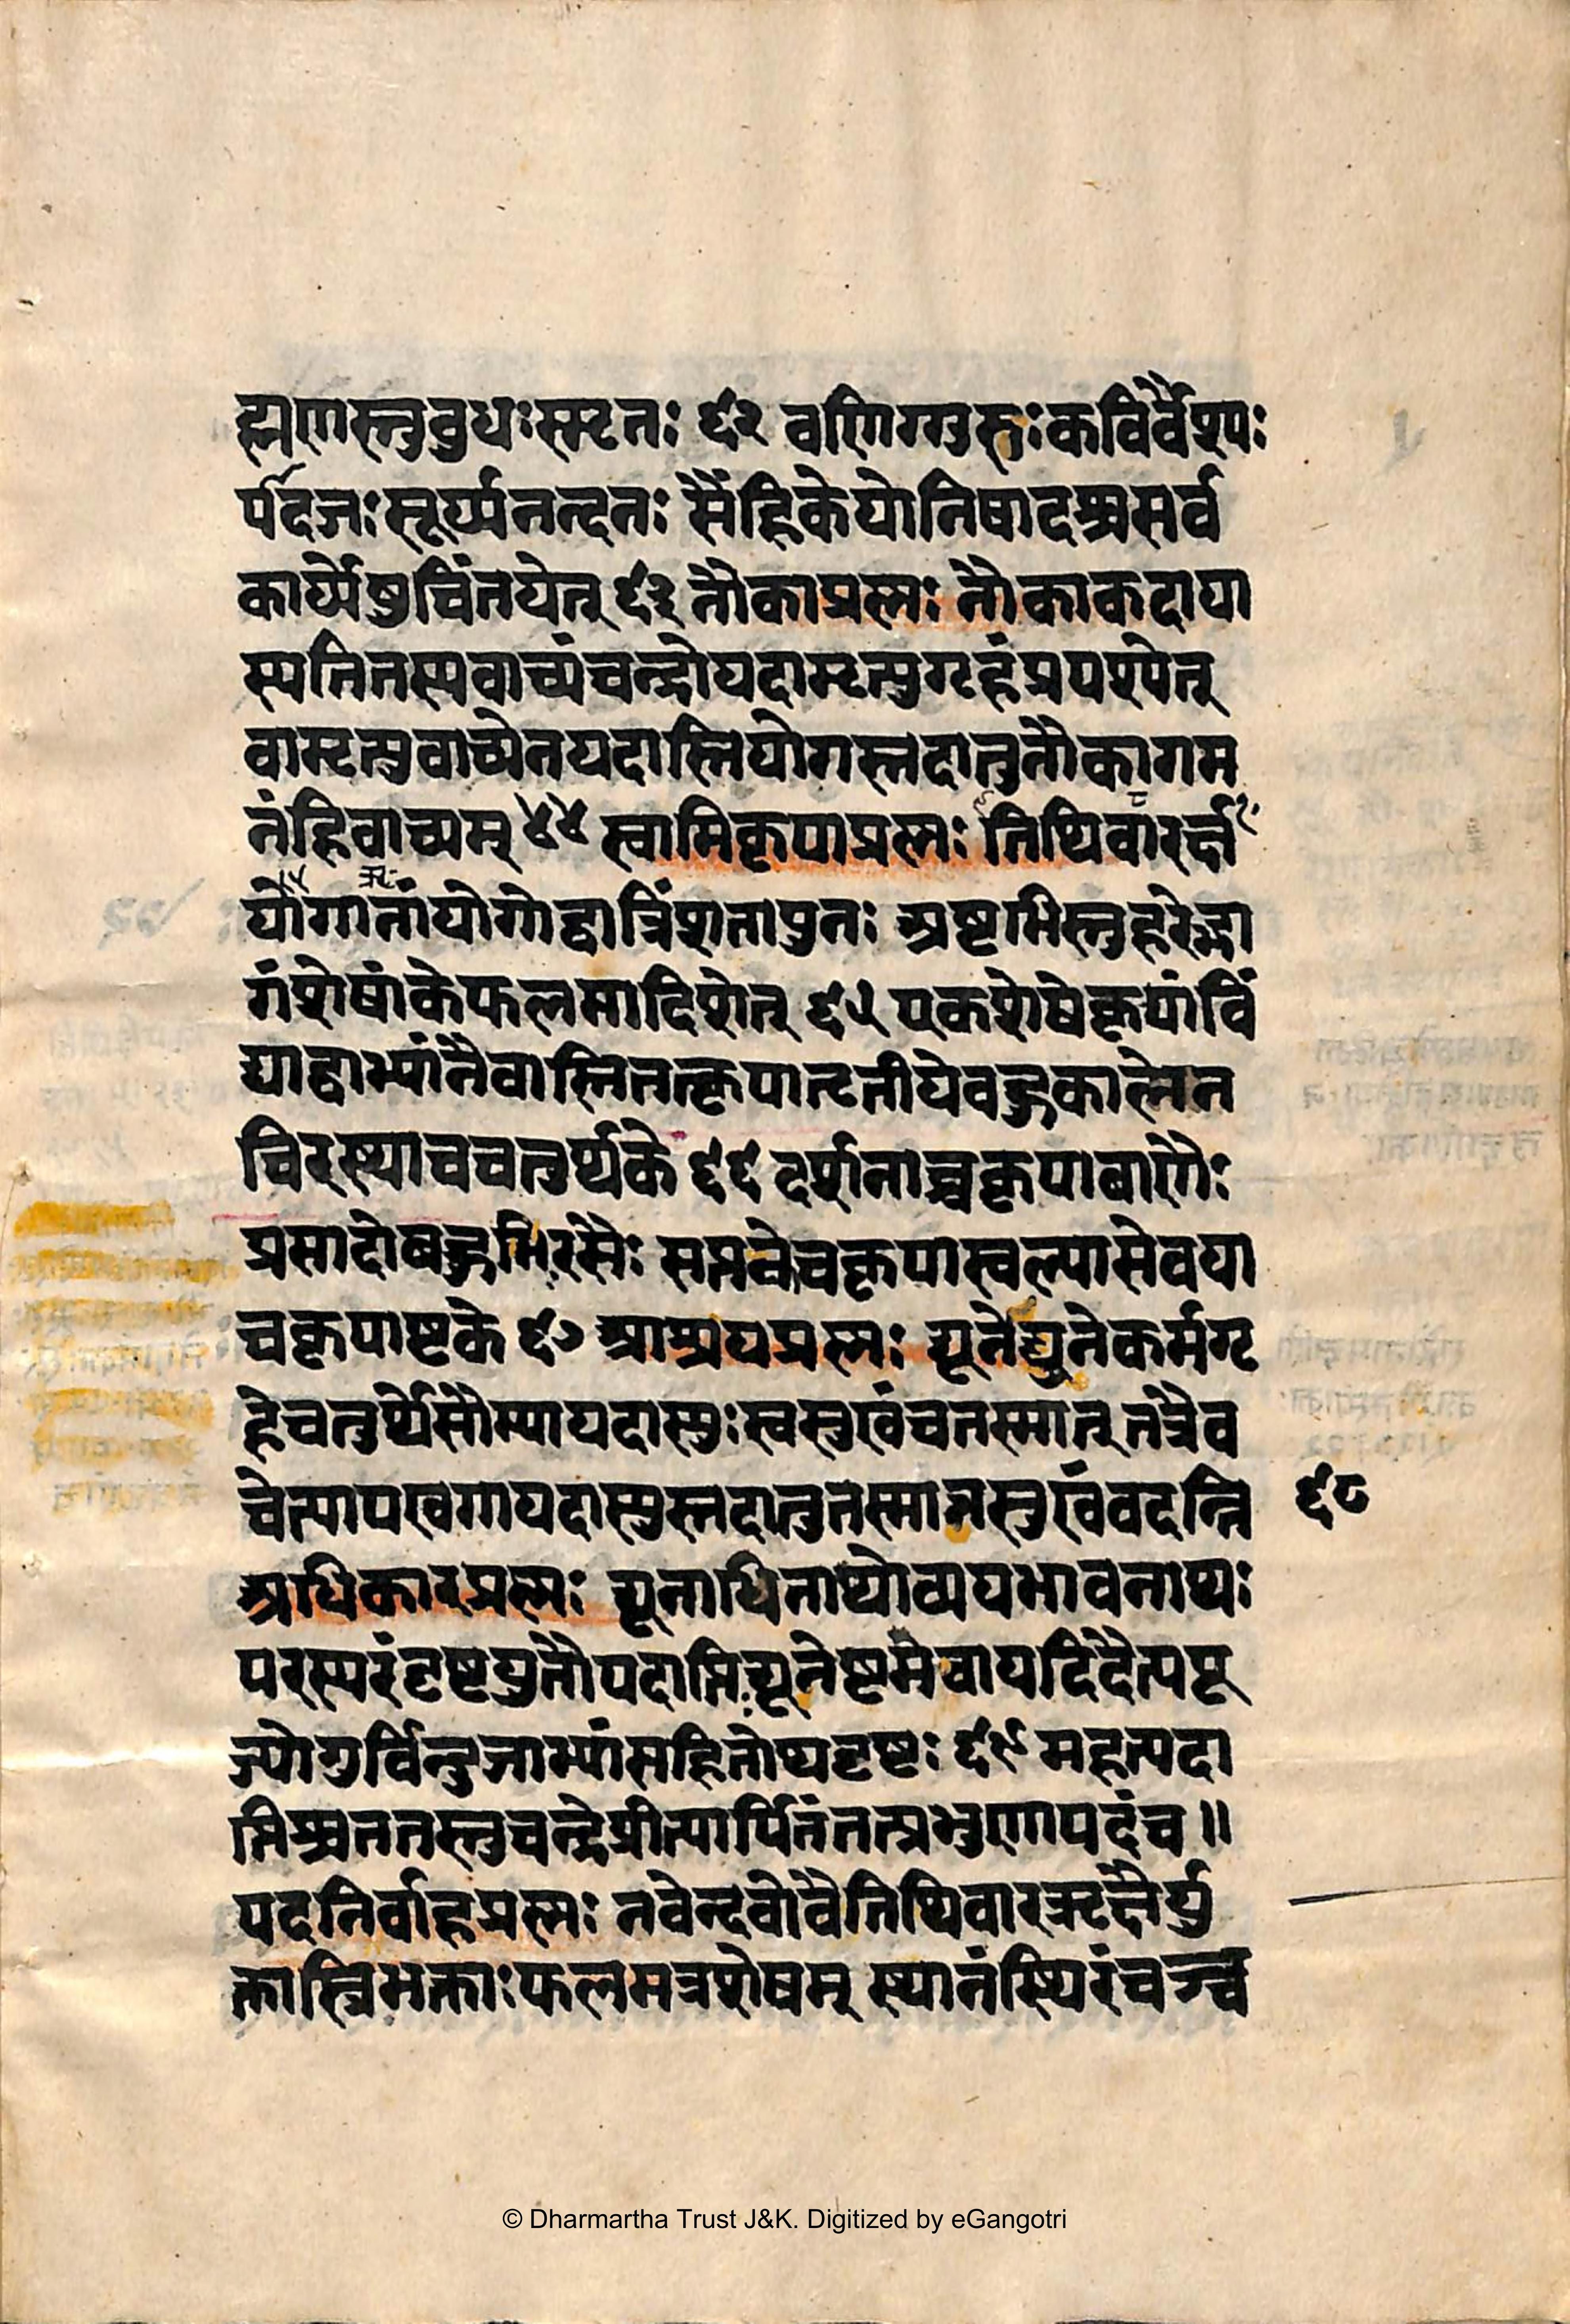 ह्मणस्तुबुधःस्मृतः ६२ वणिग्गुरुःकविर्वैश्यः
र्पदजःसूर्य्यनन्दनः सैंहिकेयोनिषादश्चसर्व
कार्य्येषुचिंतयेत् ६३ नौकाप्रश्नः नौकाकदाया
स्यतितस्यवाच्यंचन्द्रोयदामृत्युगृहंप्रपश्येत्
वामृत्युवाच्येनयदास्तियोगस्तदातुनौकागम
नंहिवाच्यम् ६४ स्वामिकृपाप्रश्नः तिथिवारर्क्ष
योगानांयोगोद्वात्रिंशतायुतः अष्टभिस्तुहरेद्भा
गंशेषांकेफलमादिशेत् ६५ एकशेषेकृपांविं
द्याद्वाभ्यांनैवास्तितत्कृपातृतीयेवहुकालेन
चिरस्थाचचतुर्थके ६६ दर्शनाच्चकृपाबाणैः
प्रसादोबहुभिरसैः सप्तकेचकृपास्वल्पासेवया
चकृपाष्टके ६७ आश्रयप्रश्नः द्यूनेद्युनेकर्मगृ
हेचतुर्थेसौम्यायदास्युःस्वसुखंचतस्मात् तत्रैव
चेत्पापखगायदास्युस्तदातुतस्मान्नसुखंवदन्ति ६८
अधिकारप्रश्नः द्यूनाधिनाथोव्ययभावनाथः
परस्परंदृष्टयुतौयदामिद्यूनेष्टमेवायदिदैत्यपू
ज्योगुर्विन्दुजाभ्यांसहितोथदृष्टः ६९ महत्पदा
प्तिश्चततस्तुचन्द्रेप्रीत्यार्पितंतत्प्रभुणापदंच ॥
पदनिर्वाहप्रश्नः नवेन्दवोवैतिथिवारऋक्षैर्यु
क्तास्त्रिभक्ताःफलमत्रशेषम् स्थानंस्थिरंच
© Dharmartha Trust J&K. Digitized by eGangotri